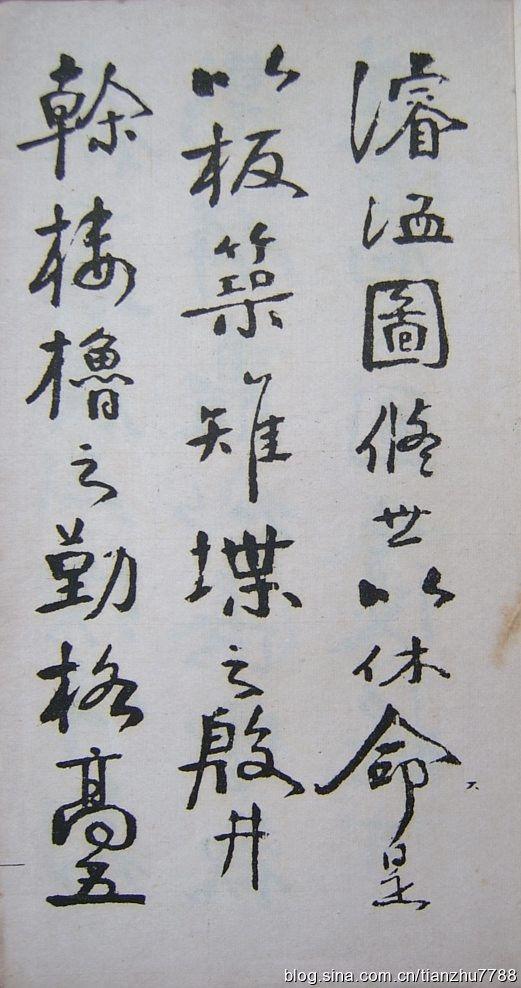 濬洫圖脩世以休命是
以板築雉堞之殷井
榦櫓之勤格高五
blog.sina.com.cn/tianzhu7788